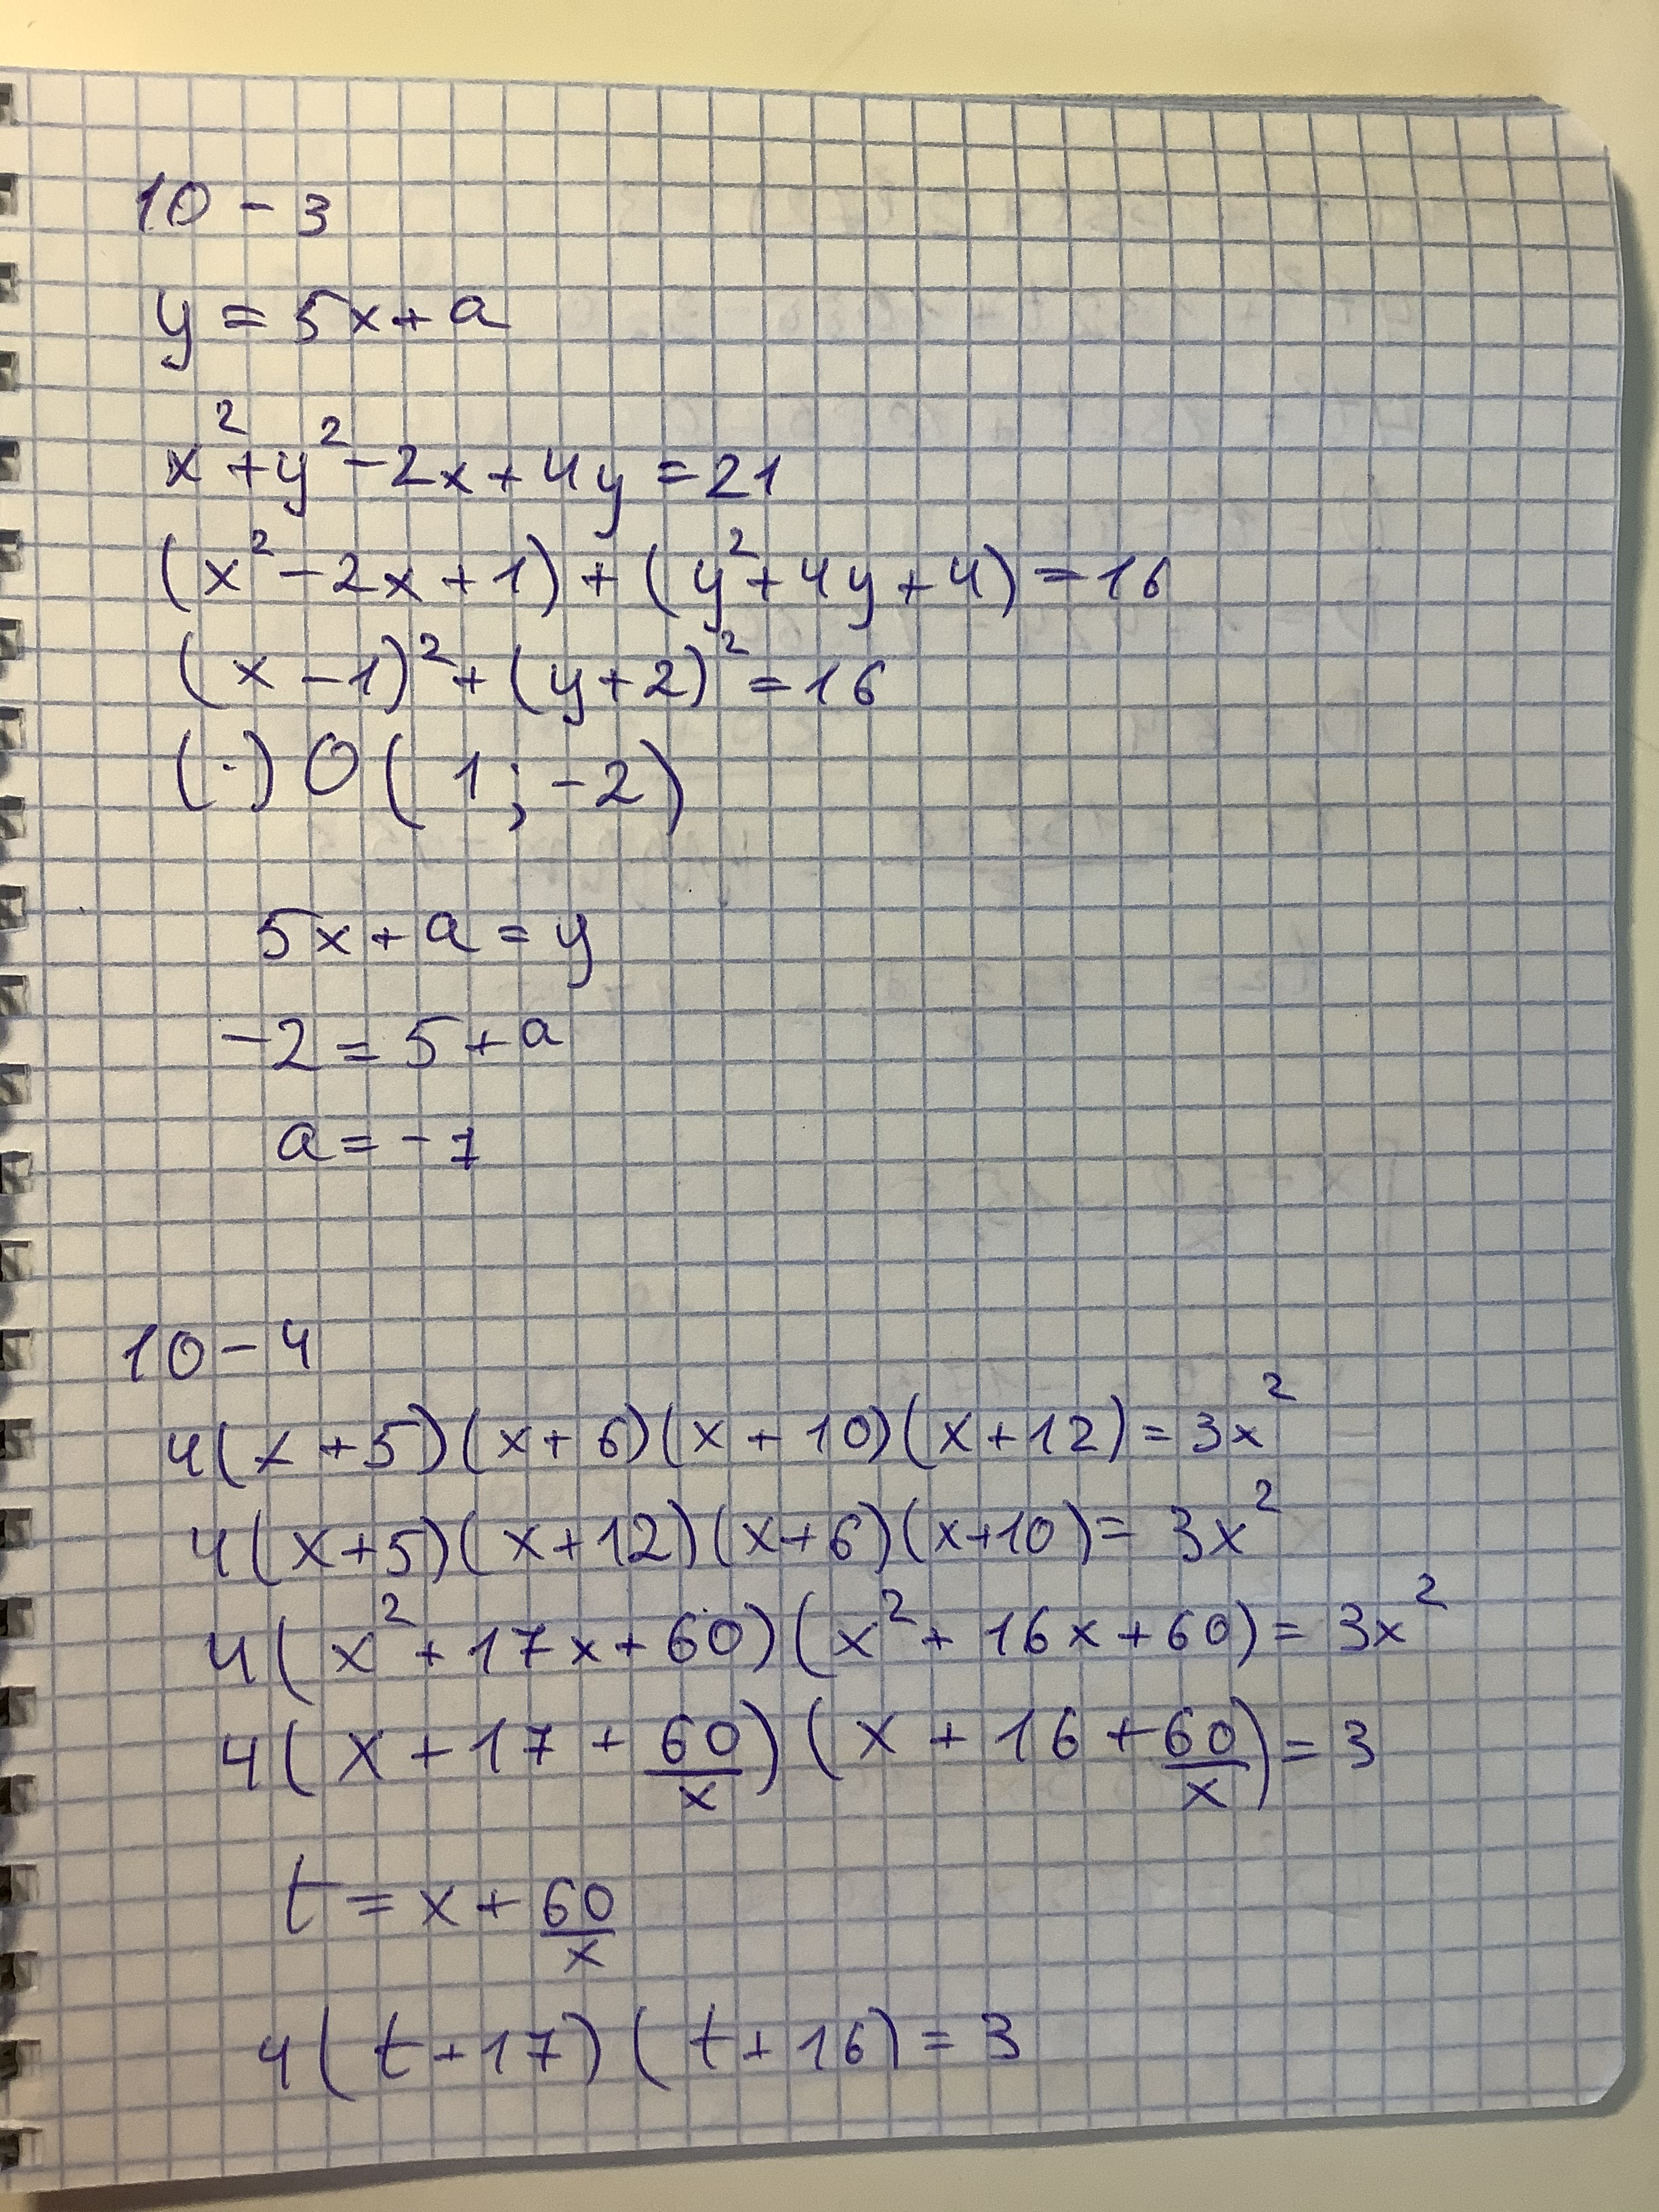 10 - 3
y = 5x + a
x² + y² - 2x + 4y = 21
(x² - 2x + 1) + (y² + 4y + 4) = 16
(x - 1)² + (y + 2)² = 16
(·) O ( 1 ; -2)
5x + a = y
-2 = 5 + a
a = -7
10 - 4
4(x + 5)(x + 6)(x + 10)(x + 12) = 3x²
4(x + 5)(x + 12)(x + 6)(x + 10) = 3x²
4(x² + 17x + 60)(x² + 16x + 60) = 3x²
4(x + 17 + 60/x)(x + 16 + 60/x) = 3
t = x + 60/x
4(t + 17)(t + 16) = 3